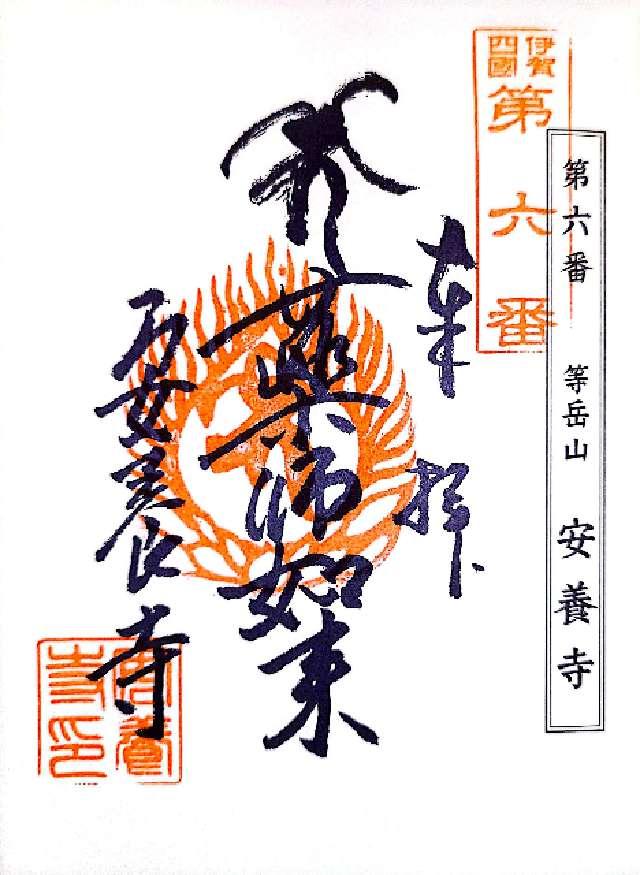 伊賀
四國
第六番
第六番 等岳山 安養寺
奉拝
薬師如来
安養寺
安養
寺印